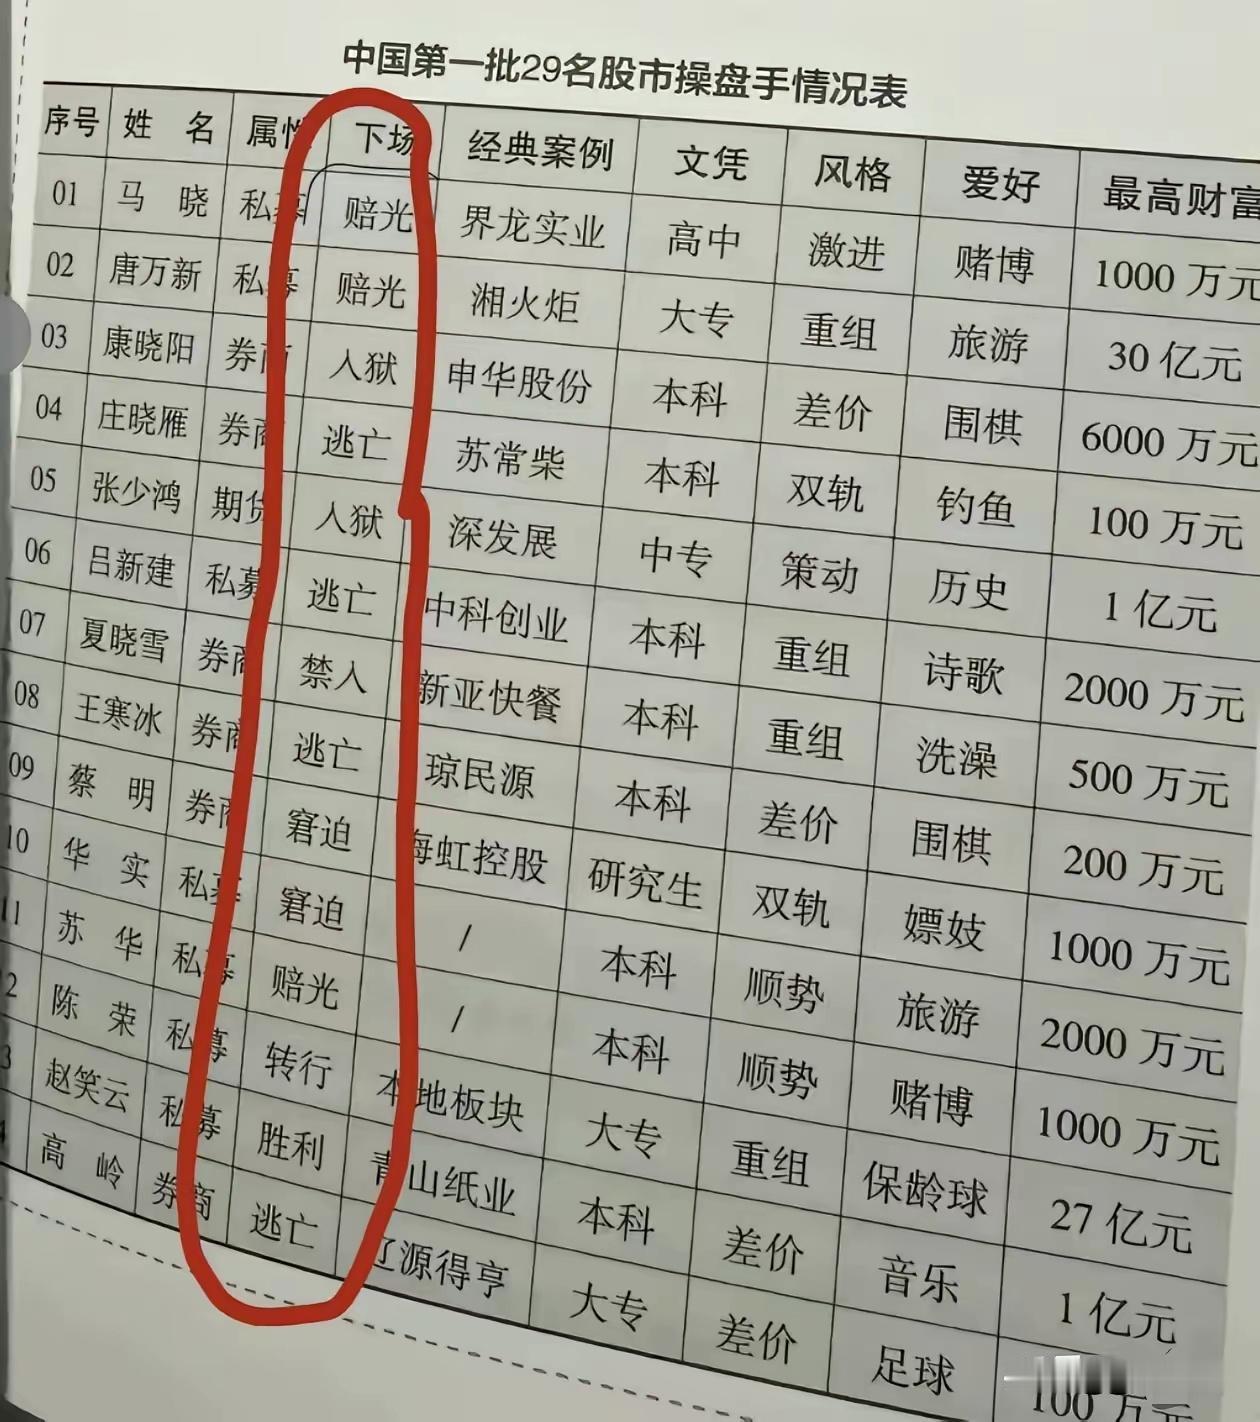 中国第一批29名股市操盘手情况表
序号 姓 名 属性 下场 经典案例 文凭 风格 爱好 最高财富
01 马 晓 私募 赔光 界龙实业 高中 激进 赌博 1000万元
02 唐万新 私募 赔光 湘火炬 大专 重组 旅游 30亿元
03 康晓阳 券商 入狱 申华股份 本科 差价 围棋 6000万元
04 庄晓雁 券商 逃亡 苏常柴 本科 双轨 钓鱼 100万元
05 张少鸿 期货 入狱 深发展 中专 策动 历史 1亿元
06 吕新建 私募 逃亡 中科创业 本科 重组 诗歌 2000万元
07 夏晓雪 券商 禁入 新亚快餐 本科 重组 洗澡 500万元
08 王寒冰 券商 逃亡 琼民源 本科 差价 围棋 200万元
09 蔡 明 券商 窘迫 海虹控股 研究生 双轨 嫖妓 1000万元
10 华 实 私募 窘迫 / 本科 顺势 旅游 2000万元
11 苏 华 私募 赔光 / 本科 顺势 赌博 1000万元
2 陈 荣 私募 转行 本地板块 大专 重组 保龄球 27亿元
3 赵笑云 私募 胜利 青山纸业 本科 差价 音乐 1亿元
4 高 岭 券商 逃亡 辽源得亨 大专 差价 足球 100万元